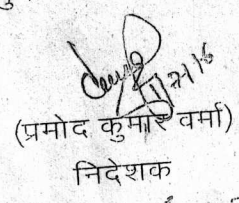 (प्रमोद कुमार वर्मा)
निदेशक